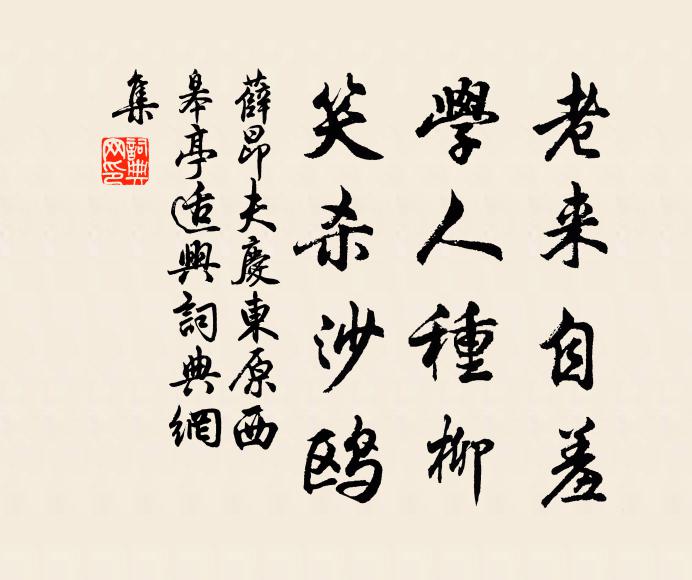 老来自羞
學人種柳
笑杀沙鸥
薛昂夫慶東原西
皋亭适興詞典網
集
詞典网印